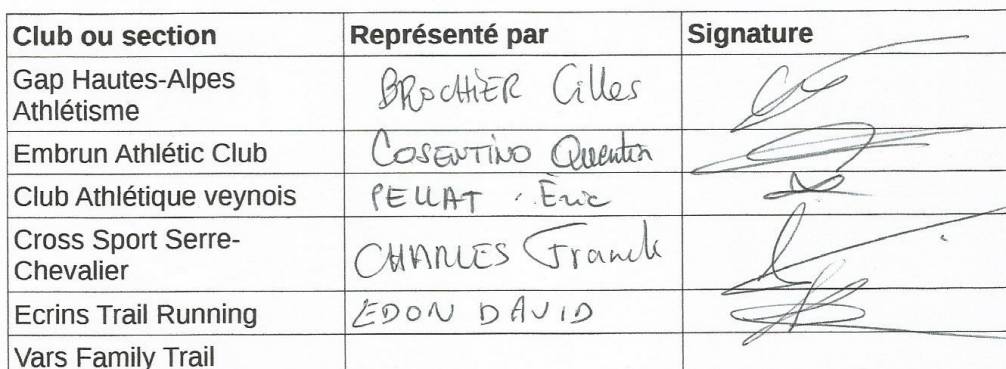 Club ou section Représenté par Signature
Gap Hautes-Alpes
Athlétisme
BROCHIER Gilles
Embrun Athlétic Club COSENTINO Quentin
Club Athlétique veynois PELLAT Éric
Cross Sport Serre-
Chevalier
CHARLES Franck
Ecrins Trail Running EDON DAVID
Vars Family Trail